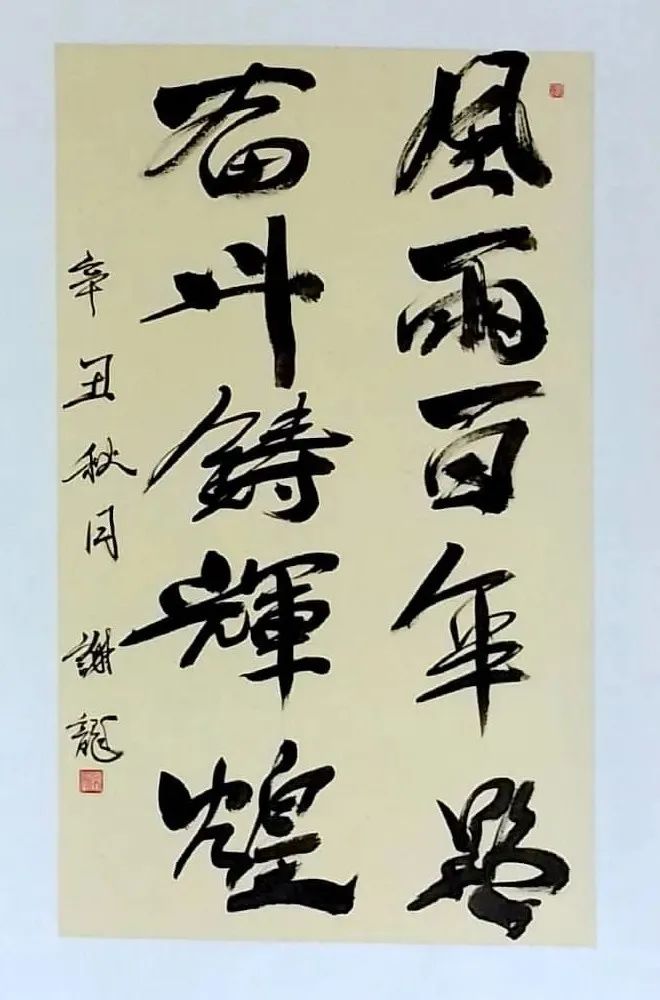 風雨百年路
奋斗鑄輝煌
辛丑秋月 謝龍